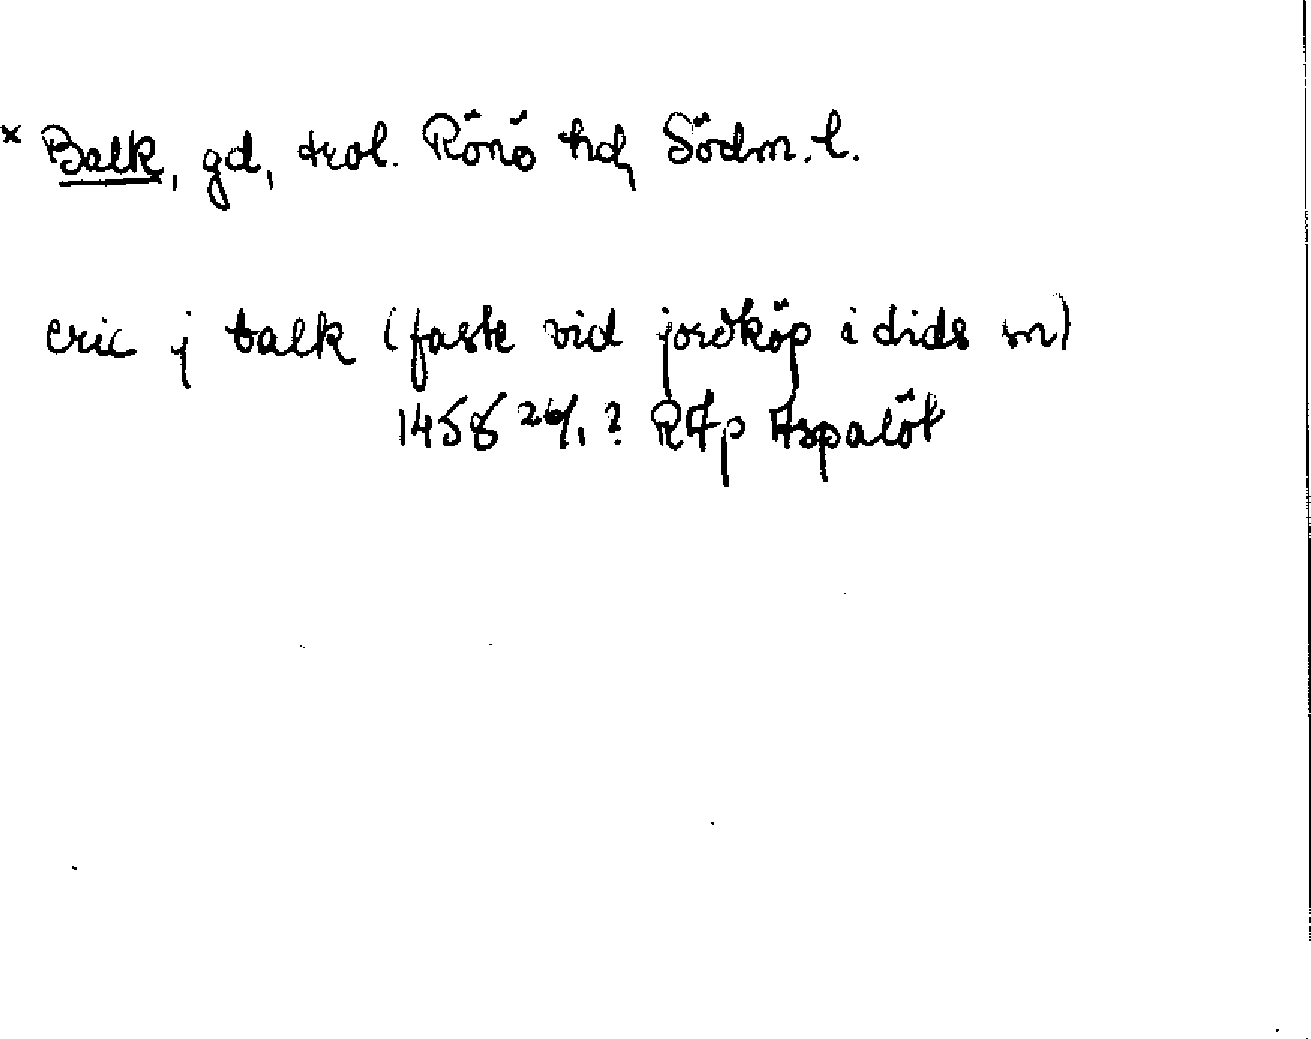 × Balk, gd, trol. Rönö hd, Södm. l.
eric j balk (faste vid jordköp i dids sn)
1458 26/1? RAp Aspalöt